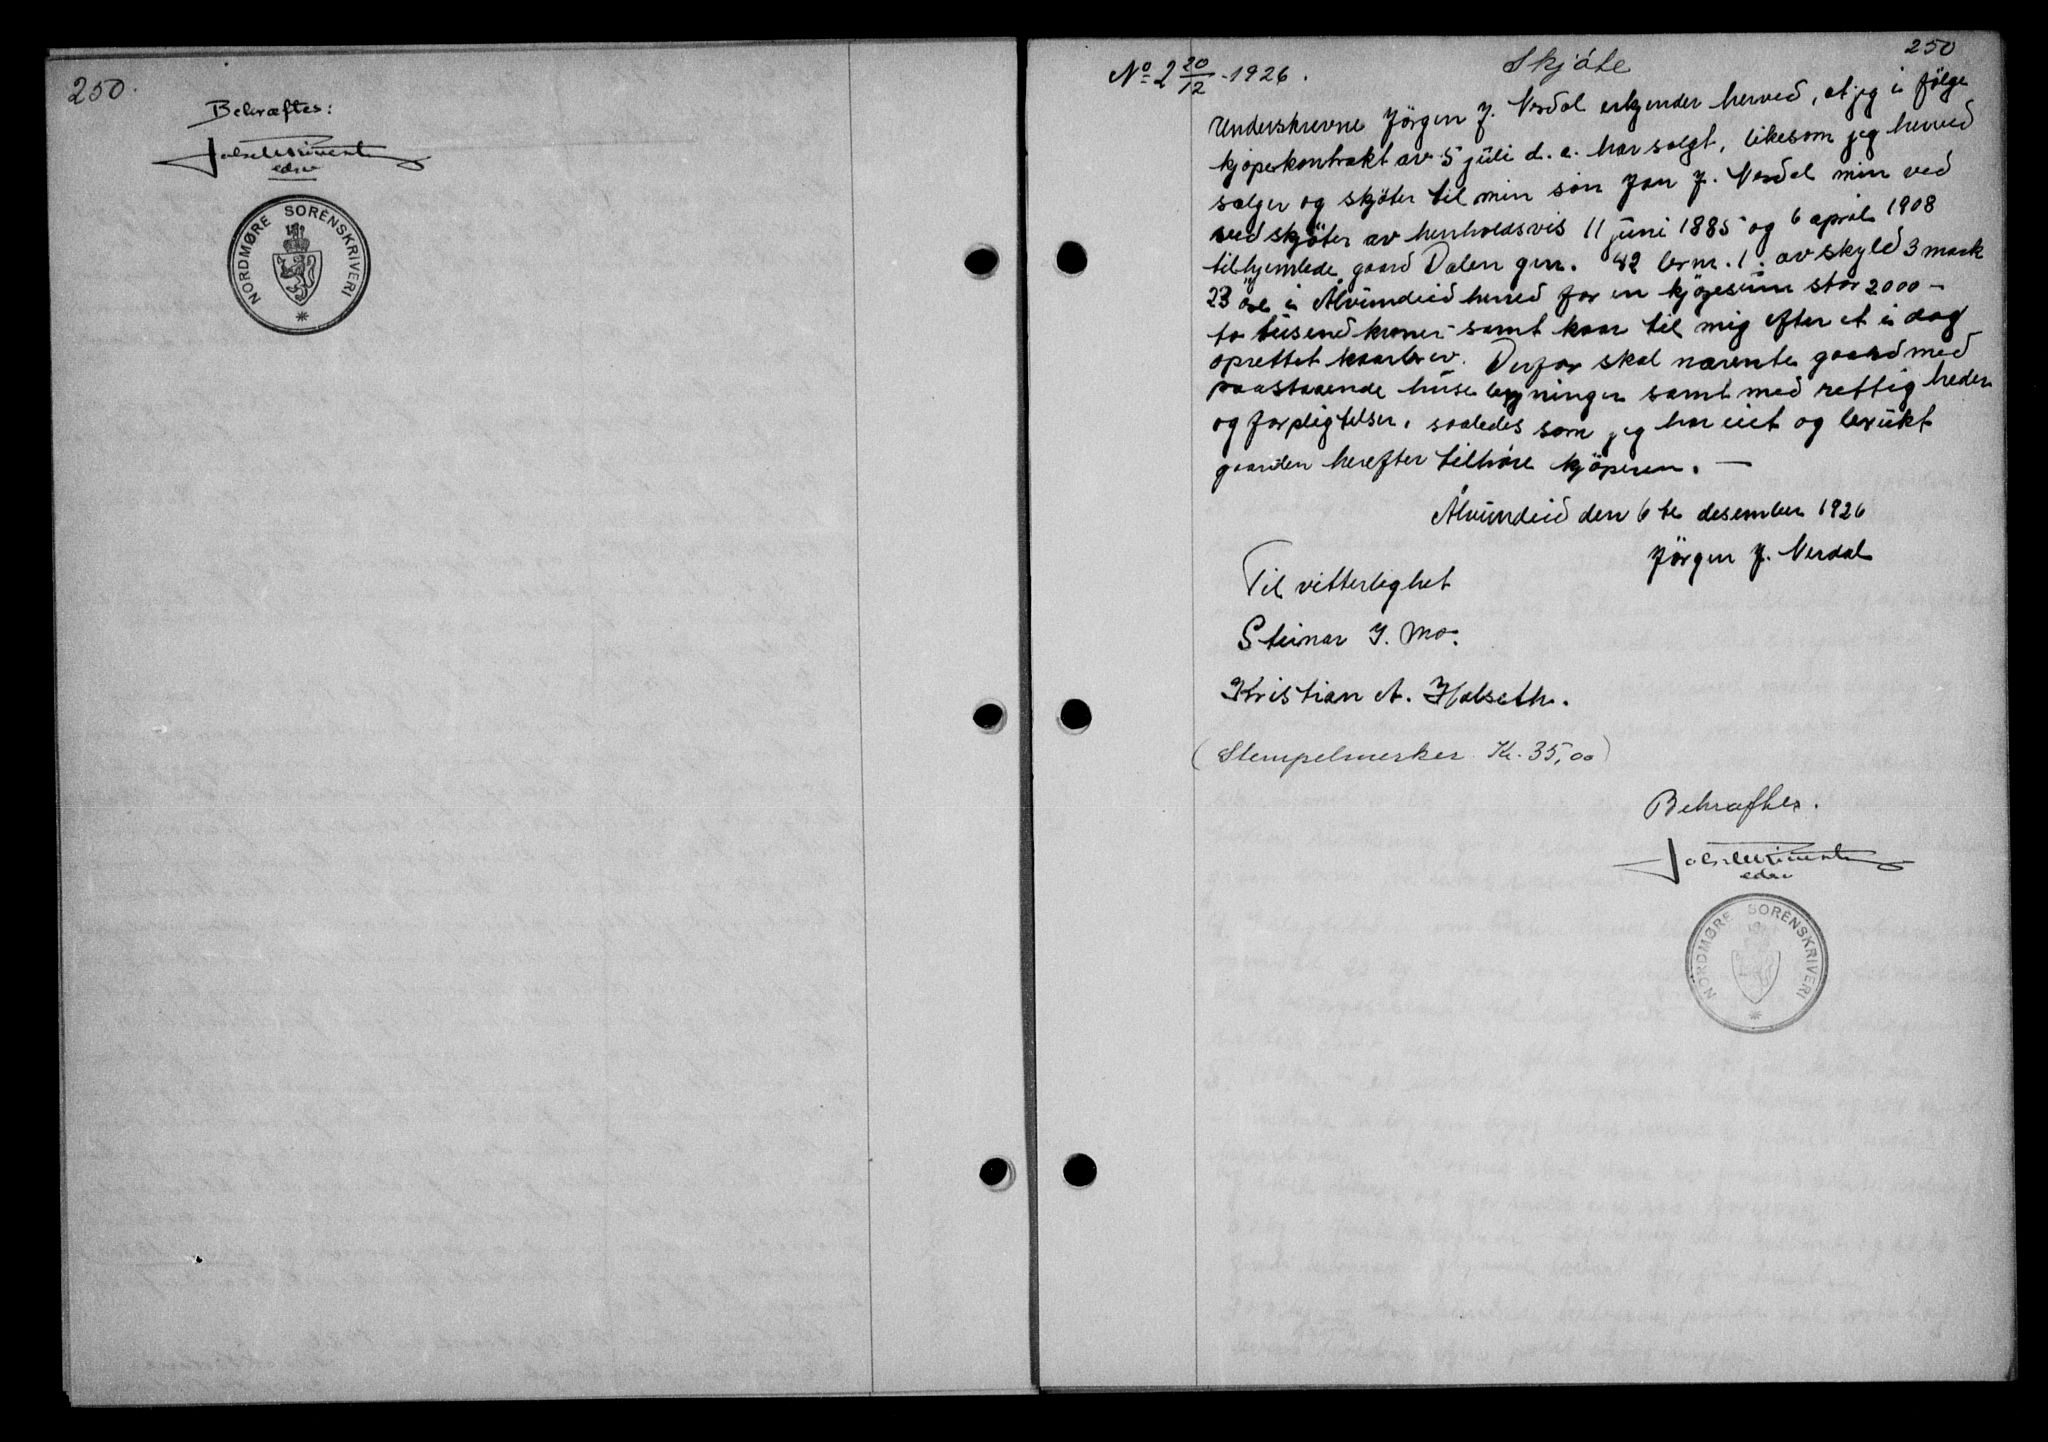 250.
Bekræftes:
edsv
NORDMØRE SORENSKRIVERI
250
No 2 20/12-1926.
Skjöte
Underskrevne Jörgen J. Nerdal erkjender herved, at jeg i fölge
kjöpekontrakt av 5 juli d.a. har solgt, likesom jeg herved
sælger og skjöter til min sön Jon J. Nerdal min ved
ved skjöter av henholdsvis 11 juni 1885 og 6 april 1908
tilhjemlede gaard Dalen gnr. 42 brnr. 1. av skyld 3 mark
23 öre i Ålvundeid herred for en kjöpesum stor 2000 -
to tusend kroner - samt kaar til mig efter et i dag
oprettet kaarbrev. Derfor skal nævnte gaard med
paastaaende husebygninger samt med rettigheder
og forpligtelser, saaledes som jeg har eiet og brukt
gaarden herefter tilhöre kjöperen. -
Ålvundeid den 6te desember 1926
Jörgen J. Nerdal
Til vitterlighet
Steinar J. Mo.
Kristian A. Halseth.
(Stempelmerker Kr. 35,00)
Bekræftes.
edsv
NORDMØRE SORENSKRIVERI